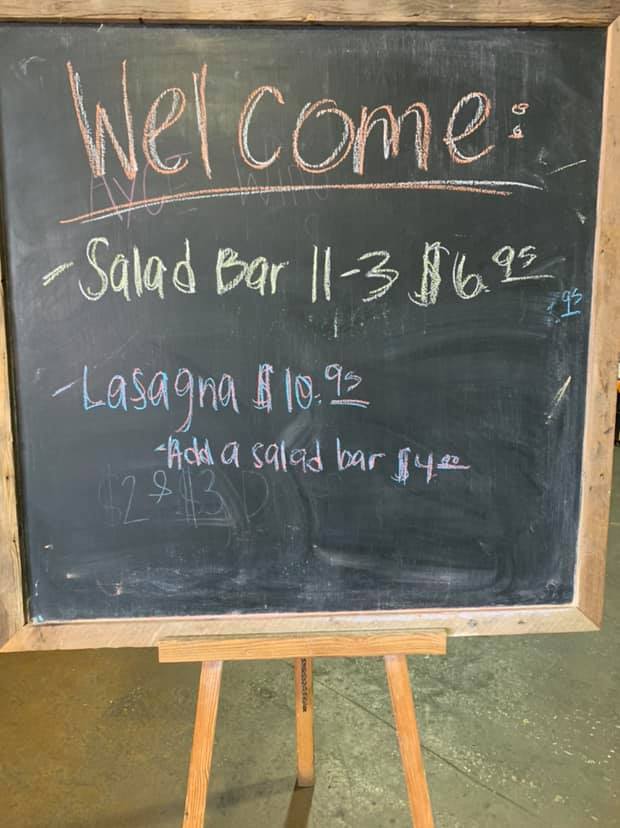 Welcome:
- Salad Bar 11-3 $6.95
.95
- Lasagna $10.95
- Add a salad bar $4.00
$2 & $3